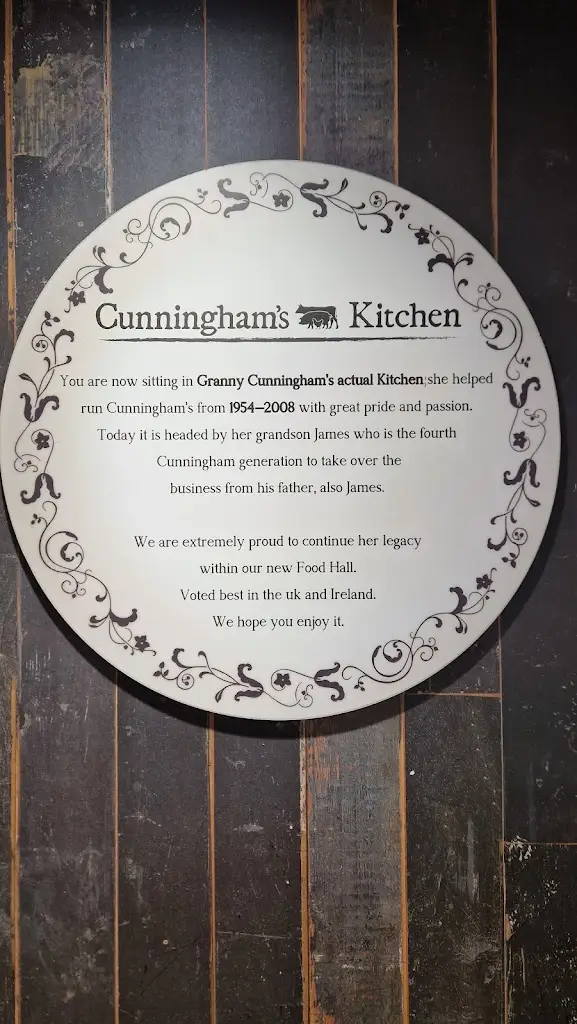 Cunningham's Kitchen
You are now sitting in Granny Cunningham's actual Kitchen; she helped
run Cunningham's from 1954–2008 with great pride and passion.
Today it is headed by her grandson James who is the fourth
Cunningham generation to take over the
business from his father, also James.
We are extremely proud to continue her legacy
within our new Food Hall.
Voted best in the uk and Ireland.
We hope you enjoy it.